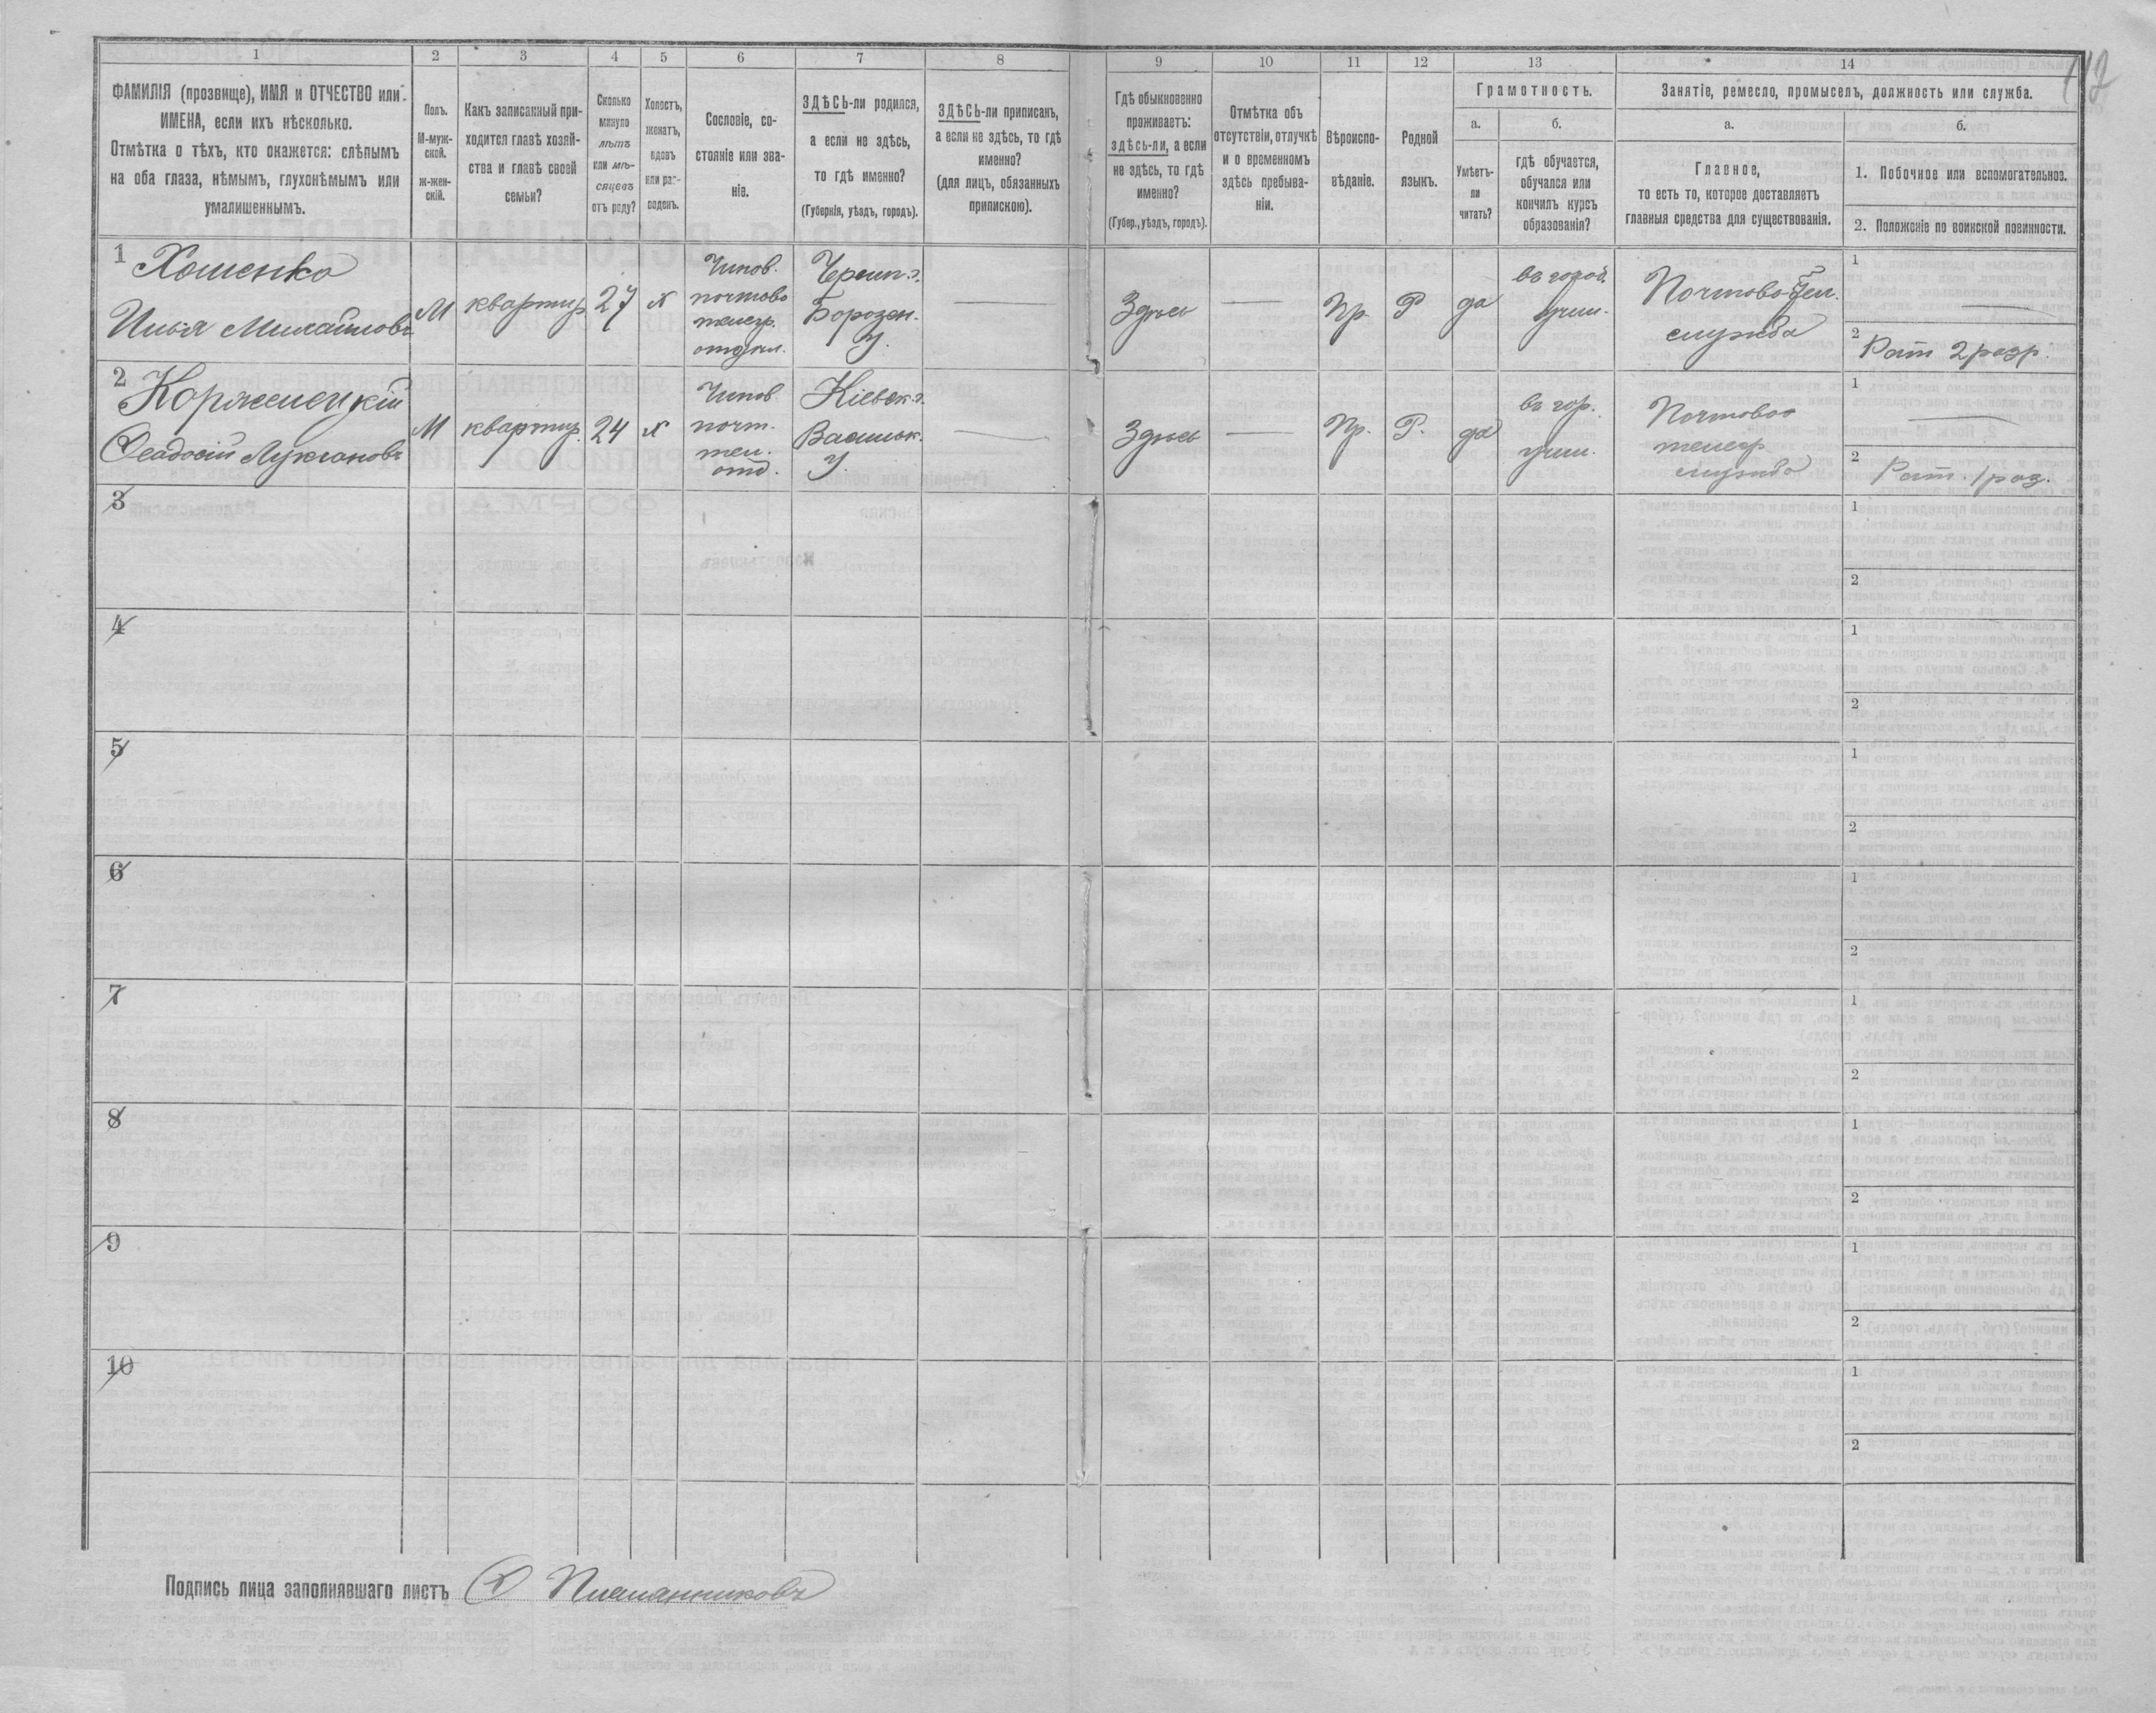 1 2 3 4 5 6 7 8 9 10 11 12 13 14
ФАМИЛІЯ (прозвище), ИМЯ и ОТЧЕСТВО или
ИМЕНА, если ихъ нѣсколько.
Отмѣтка о тѣхъ, кто окажется: слѣпымъ
на оба глаза, нѣмымъ, глухонѣмымъ или
умалишеннымъ.
Полъ.
М-муж-
ской.
Ж-жен-
скій.
Какъ записанный при-
ходится главѣ хозяй-
ства и главѣ своей
семьи?
Сколько
минуло
лѣтъ
или мѣ-
сяцевъ
отъ роду?
Холостъ,
женатъ,
вдовъ
или раз-
веденъ.
Сословіе, со-
стояніе или зва-
ніе.
ЗДѢСЬ-ли родился,
а если не здѣсь,
то гдѣ именно?
(Губернія, уѣздъ, городъ).
ЗДѢСЬ-ли приписанъ,
а если не здѣсь, то гдѣ
именно?
(для лицъ, обязанныхъ
припискою).
Гдѣ обыкновенно
проживаетъ:
здѣсь-ли, а если
не здѣсь, то гдѣ
именно?
(Губер., уѣздъ, городъ).
Отмѣтка объ
отсутствіи, отлучкѣ
и о временномъ
здѣсь пребыва-
ніи.
Вѣроиспо-
вѣданіе.
Родной
языкъ.
Грамотность.
а.
Умѣетъ-
ли
читать?
б.
гдѣ обучается,
обучался или
кончилъ курсъ
образованія?
Занятіе, ремесло, промыселъ, должность или служба.
а.
Главное,
то есть то, которое доставляетъ
главныя средства для существованія.
б.
1. Побочное или вспомогательное.
2. Положеніе по воинской повинности.
1 Хоменко
Илья Михайловъ
М
квартир
27
х
Чинов.
почтово
телегр.
отдѣл.
Черниг. г.
Борозен.
У.
Здѣсь
Пр.
Р
да
въ город.
учил.
Почтово-Тел.
служба
1
2 Рат 2 разр.
2
Ѳеодосій
М
квартир.
24
х
Чинов
почт.
тел.
отд.
Кіевск. г.
Васильк.
У.
Здѣсь
Пр.
Р.
да
въ гор.
учил.
Почтово
телегр.
служба
1
2 Рат. 1 раз.
3
1
2
4
1
2
5
1
2
6
1
2
7
1
2
8
1
2
9
1
2
10
1
2
Подпись лица заполнявшаго листъ